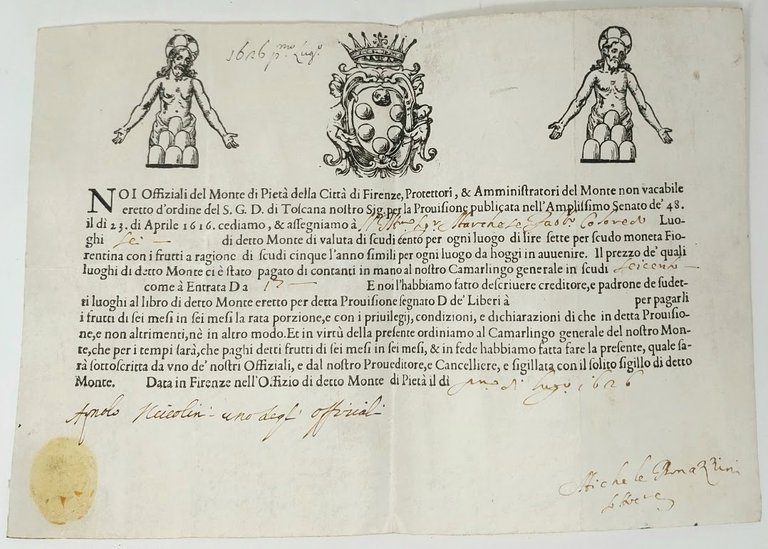 1626 p.mo Lug.o
NOI Offiziali del Monte di Pietà della Città di Firenze, Protettori, & Amministratori del Monte non vacabile
eretto d'ordine del S. G. D. di Toscana nostro Sig. per la Prouisione publicata nell'Amplissimo Senato de' 48.
il di 23. di Aprile 1616. cediamo, & assegniamo à Marchese Luo-
ghi sei di detto Monte di valuta di scudi cento per ogni luogo di lire sette per scudo moneta Fio-
rentina con i frutti a ragione di scudi cinque l'anno simili per ogni luogo da hoggi in auuenire. Il prezzo de' quali
luoghi di detto Monte ci è stato pagato di contanti in mano al nostro Camarlingo generale in scudi seicento
come à Entrata D a E noi l'habbiamo fatto descriuere creditore, e padrone de sudet-
ti luoghi al libro di detto Monte eretto per detta Prouisione segnato D de' Liberi à per pagarli
i frutti di sei mesi in sei mesi la rata porzione, e con i priuilegij, condizioni, e dichiarazioni di che in detta Prouisio-
ne, e non altrimenti, nè in altro modo. Et in virtù della presente ordiniamo al Camarlingo generale del nostro Mon-
te, che per i tempi sarà, che paghi detti frutti di sei mesi in sei mesi, & in fede habbiamo fatta fare la presente, quale sa-
rà sottoscritta da vno de' nostri Offiziali, e dal nostro Proueditore, e Cancelliere, e sigillata con il solito sigillo di detto
Monte. Data in Firenze nell'Offizio di detto Monte di Pietà il di p.mo di lug.o 1626
Niccolini uno degli offitiali
Michele